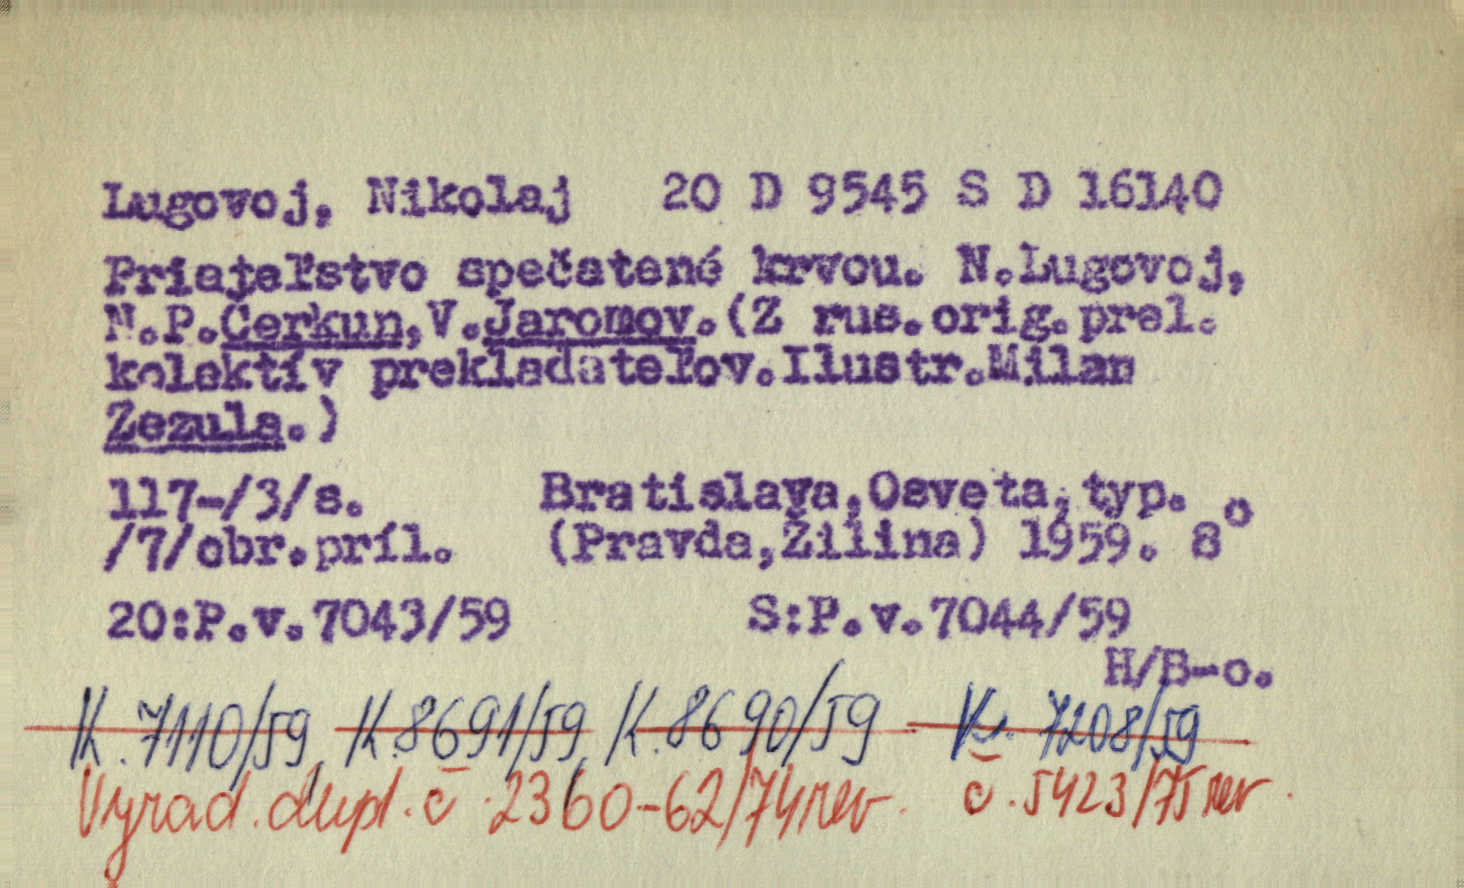 Lugovoj, Nikolaj 20 D 9545 S D 16140
Priateľstvo spečatené krvou. N.Lugovoj,
N.P.Čerkun,V.Jaromov.(Z rus.orig.prel.
kolektív prekladateľov.Ilustr.Milan
Zezula.)
117-/3/s. Bratislava,Osveta,typ.
/7/obr.príl. (Pravda,Žilina) 1959. 8°
20:P.v.7043/59 S:P.v.7044/59
H/B-o.
K.7110/59, K.8691/59, K.8690/59 Kr. 7208/59
Vyrad. dupl. č. 2360-62/74rev. č. 5423/75 rev.